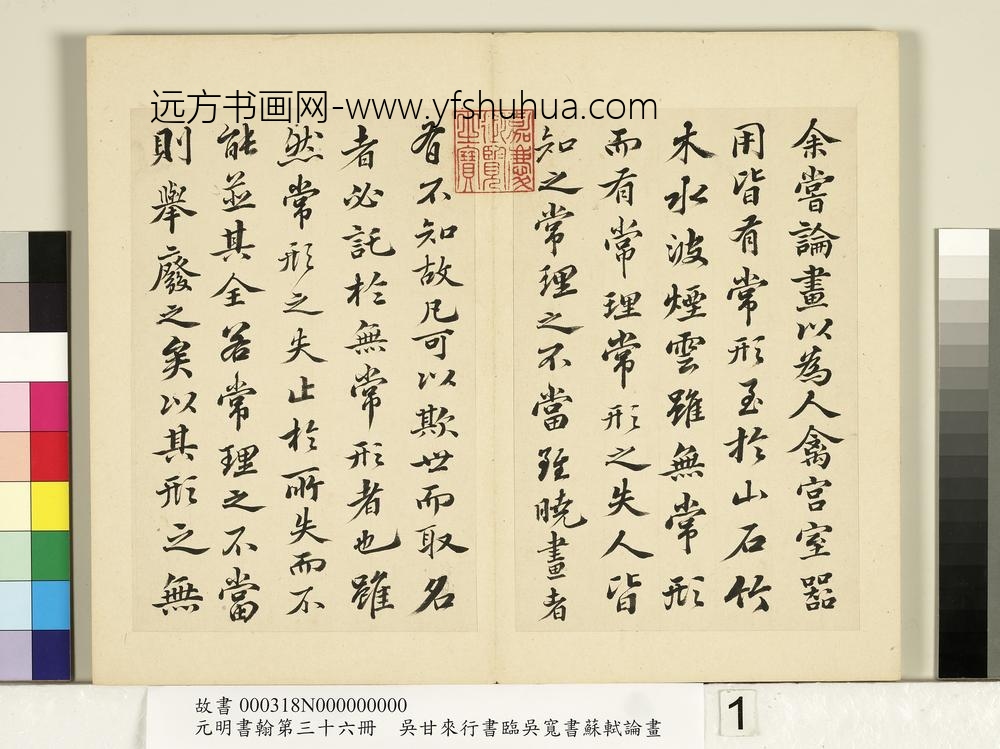 远方书画网-www.yfshuhua.com
余嘗論畫以為人禽宮室器
用皆有常形至於山石竹
木水波煙雲雖無常形
而有常理常形之失人皆
知之常理之不當雖曉畫者
有不知故凡可以欺世而取名
者必託於無常形者也雖
然常形之失止於所失而不
能並其全若常理之不當
則舉廢之矣以其形之無
嘉慶
御覽
之寶
故書 000318N000000000
元明書翰第三十六冊 吳甘來行書臨吳寬書蘇軾論畫
1